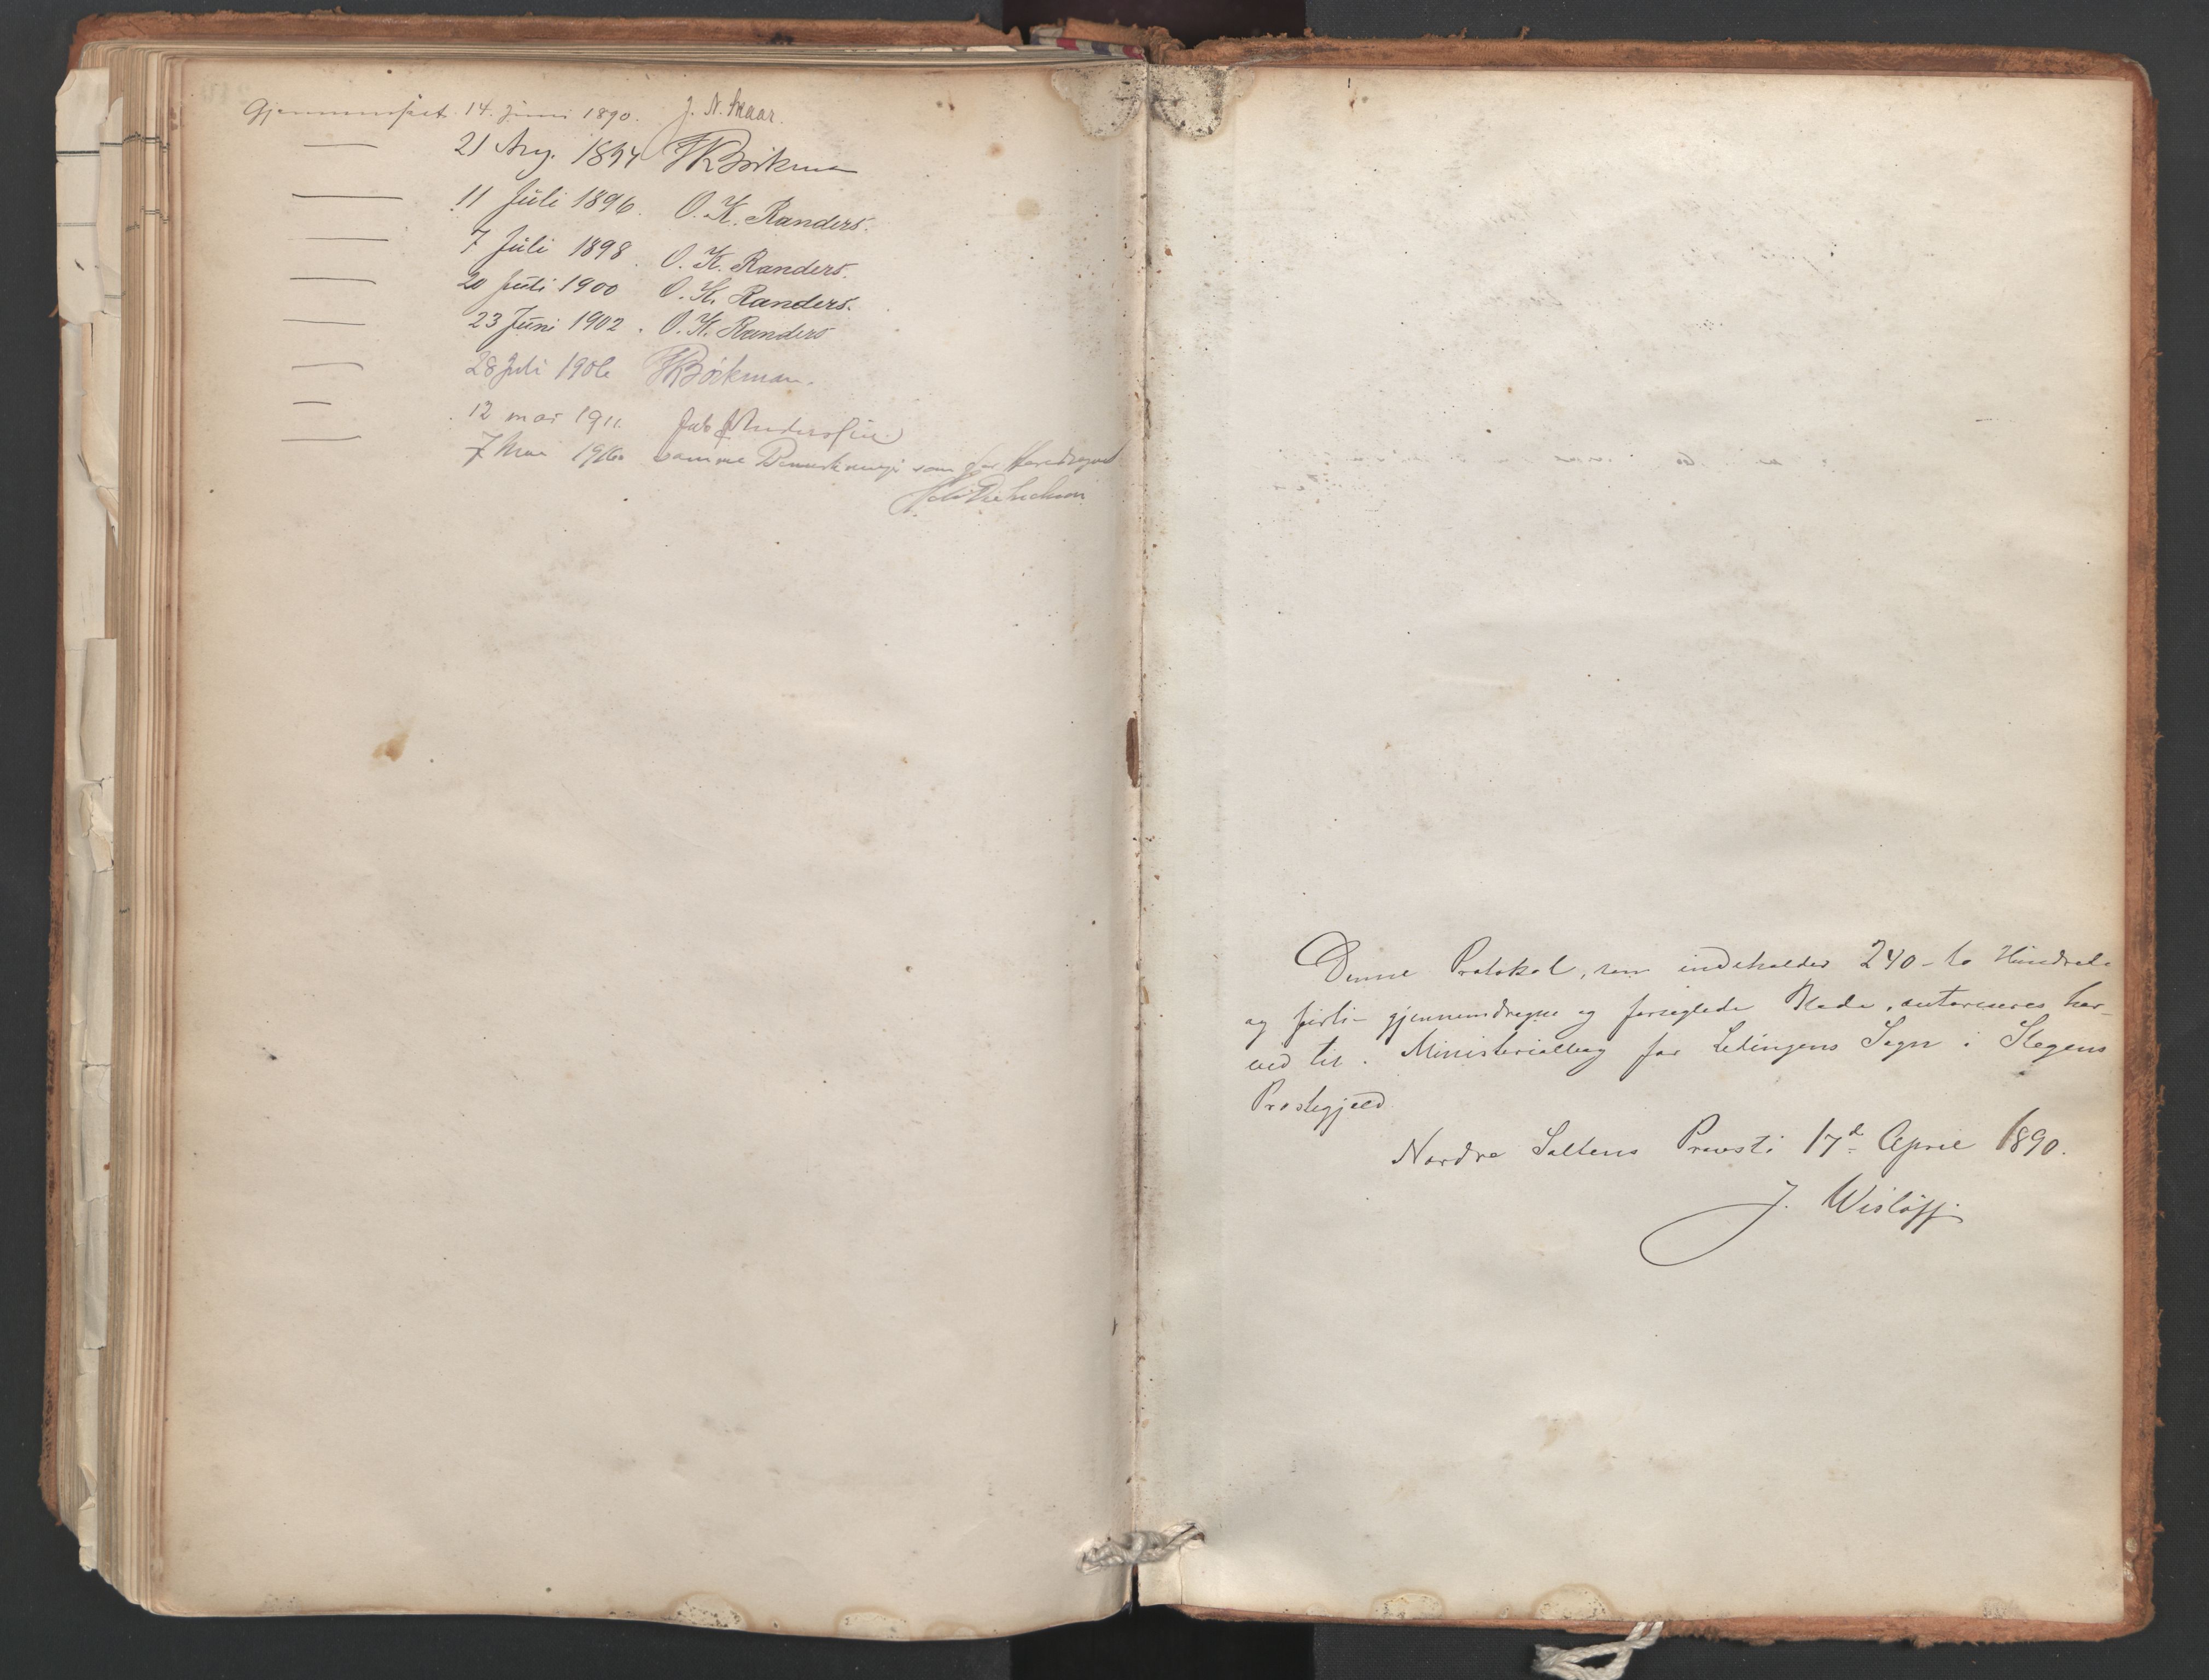 Gjennemseet 14. Juni 1890. J. N. Skaar.
— 21 Aug. 1894 Bøckman
— 11 Juli 1896. O. K. Randers.
— 7 Juli 1898. O. K. Randers.
— 20 Juli 1900 O. K. Randers.
— 23 Juni 1902. O. K. Randers
— 28 Juli 1906 Bøckman.
— 12 mai 1911
— 7 Mai samme som
Denne Protokol, som indeholder 240 - to Hundrede
og firti - gjennemdragne og forseglede Blade, autoriseres her-
ved til Ministerialbog for Ledingens Sogn i Stegens
Præstegjeld.
Nordre Saltens Provsti 17d April 1890.
J. Wisløff